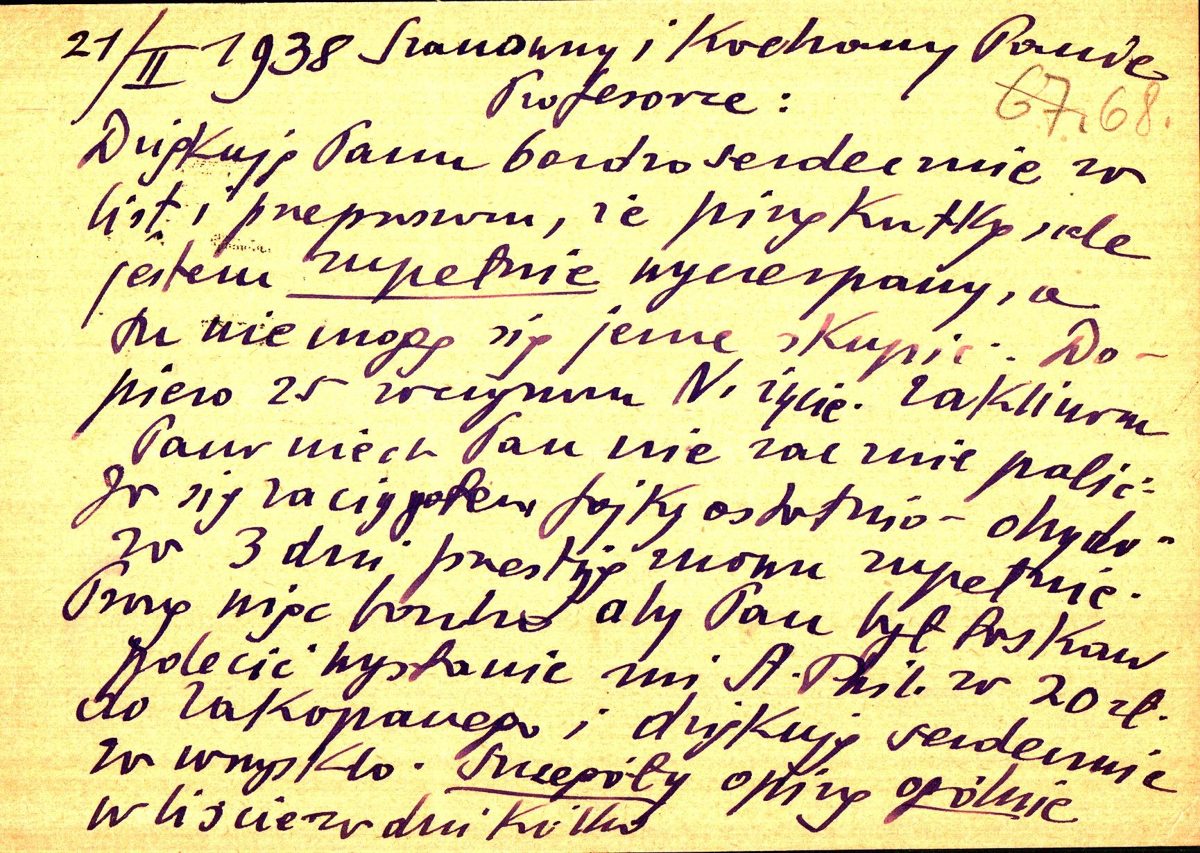 21/II 1938 Szanowny i Kochany Panie
Profesorze:
67. 68.
Dziękuję Panu bardzo serdecznie za
list i przepraszam, że piszę krótko, ale
jestem zupełnie wyczerpany, a
tu nie mogę się jeszcze skupić. Do-
piero 25 zaczynam N. życie. Zaklinam
Pana niech Pan nie zacznie palić:
Ja się zaciągałem fajką ostatnio – ohyda –
za 3 dni przestaję znowu zupełnie.
Proszę więc bardzo aby Pan był łaskaw
polecić wysłanie mi A. Phil. za 20 zł.
do Zakopanego i dziękuję serdecznie
za wszystko. Szczegóły opiszę ogólnie
w liście za dni kilka